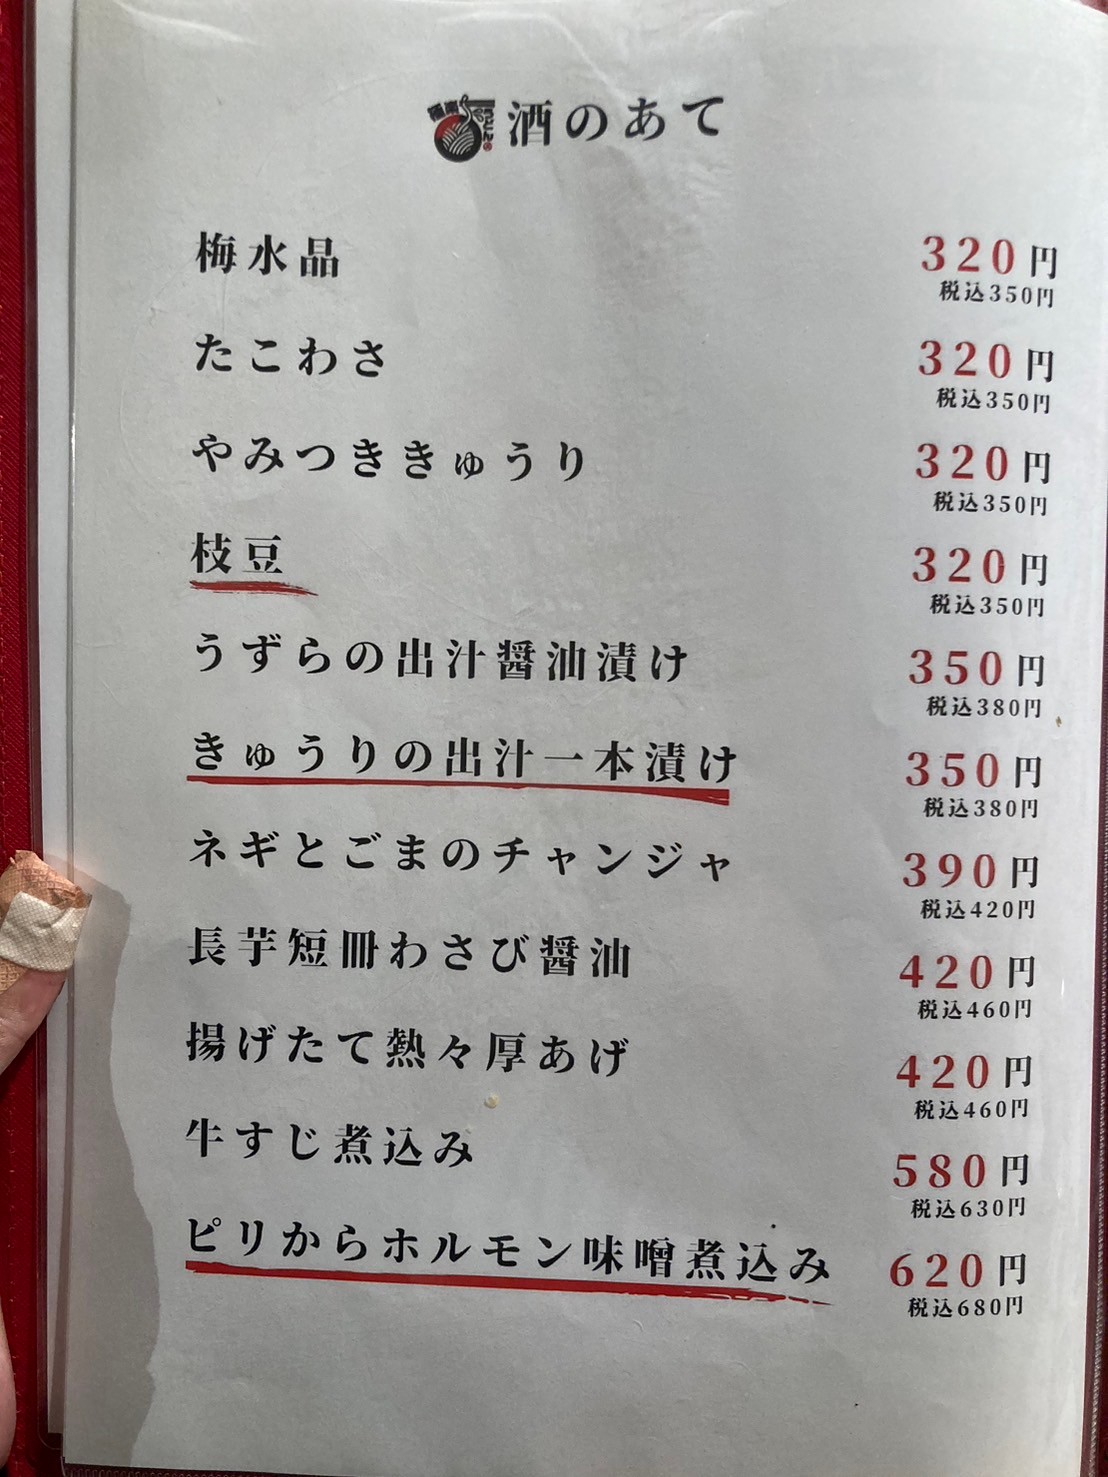 酒のあて
梅水品 320円
税込350円
たこわさ 320円
税込350円
やみつききゅうり 320円
税込350円
枝豆 320円
税込350円
うずらの出汁醤油漬け 350円
税込380円
きゅうりの出汁一本漬け 350円
税込380円
ネギとごまのチャンジャ 390円
税込420円
長芋短冊わさび醤油 420円
税込460円
揚げたて熱々厚あげ 420円
税込460円
牛すじ煮込み 580円
税込630円
ピリからホルモン味噌煮込み 620円
税込680円